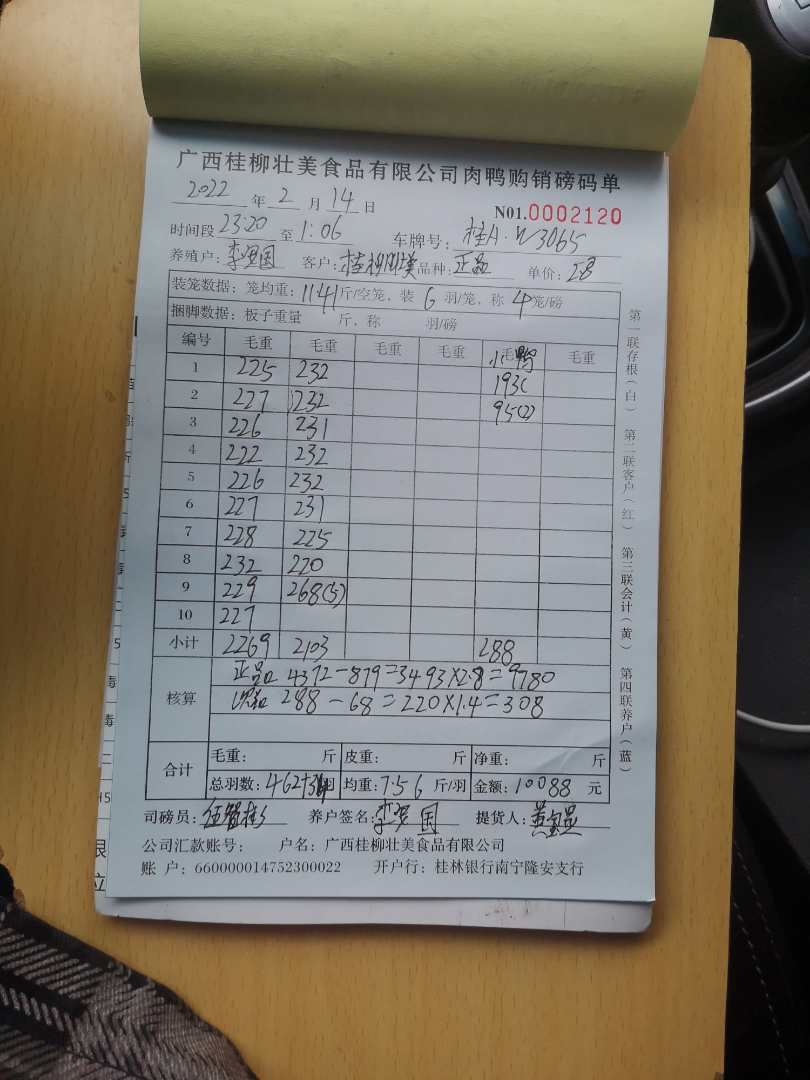 广西桂柳壮美食品有限公司肉鸭购销磅码单
2022 年 2 月 14 日 N01.0002120
时间段 23:20 至 1:06 车牌号: 桂A·W3065
养殖户: 李 国 客户: 桂柳壮美 品种: 正品 单价: 2.8
装笼数据: 笼均重: 11.41 斤/空笼, 装 6 羽/笼, 称 4 笼/磅
捆脚数据: 板子重量 斤, 称 羽/磅
编号 毛重 毛重 毛重 毛重 毛重 小鸭 毛重
1 225 232 193(
2 227 232 95(2)
3 226 231
4 222 232
5 226 232
6 227 231
7 228 225
8 232 220
9 229 268(5)
10 227
小计 2269 2103 288
核算 正品 4372-879=3493×2.8=9780
288-68=220×1.4=308
合计 毛重: 斤 皮重: 斤 净重: 斤
总羽数: 462+ 羽 均重: 7.56 斤/羽 金额: 10088 元
司磅员: 养户签名: 李 国 提货人: 黄
公司汇款账号: 户名: 广西桂柳壮美食品有限公司
账 户: 660000014752300022 开户行: 桂林银行南宁隆安支行
第一联存根(白) 第二联客户(红) 第三联会计(黄) 第四联养户(蓝)